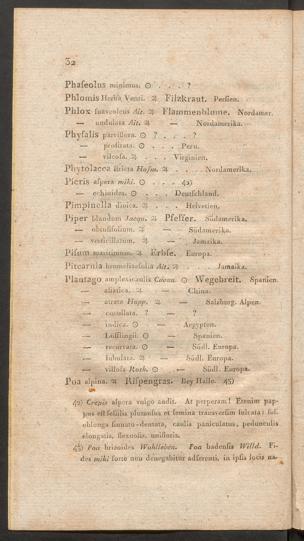 32
Phaseolus minimus. ☉ . . . . ?
Phlomis Herba Venti. ♃ Filzkraut. Persien.
Phlox suaveolens Ait. ♃ Flammenblume. Nordamer.
— undulata Ait. ♃ — Nordamerika.
Physalis parviflora. ☉ ? . . . ?
— prostrata. ☉ . . . Peru.
— viscosa. ♃ . . . . Virginien.
Phytolacca stricta Hofm. ♃ . . . Nordamerika.
Picris aspera mihi. ☉ . . . . 42)
— echioides. ☉ . . . . Deutschland.
Pimpinella dioica. ♃ . . . Helvetien.
Piper blandum Jacqu. ♃ Pfeffer. Südamerika.
— obtusifolium. ♃ — Südamerika.
— verticillatum. ♃ — Jamaika.
Pisum maritimum. ♃ Erbse. Europa.
Pitcarnia bromeliaefolia Ait. ♃ . . . Jamaika.
Plantago amplexicaulis Cavan. ☉ Wegebreit. Spanien.
— asiatica. ♃ — China.
— atrata Hopp. ♃ — Salzburg. Alpen.
— cucullata. ? — ?
— indica. ☉ — Aegypten.
— Loefflingii. ☉ — Spanien.
— recurvata. ☉ — Südl. Europa.
— subulata. ♃ — Südl. Europa.
— villosa Roth. ☉ — Südl. Europa.
Poa alpina. ♃ Rispengras. Bey Halle. 43)
42) Crepis aspera vulgo audit. At perperam! Etenim pappus est sessilis plumosus et semina transversim sulcata: fol.
oblonga sinuato-dentata, caulis paniculatus, pedunculis
elongatis, flexuosis, unifloris.
43) Poa brizoides Wohlleben. Poa badensis Willd. Fides mihi forte non denegabitur adserenti, in ipsis locis na-